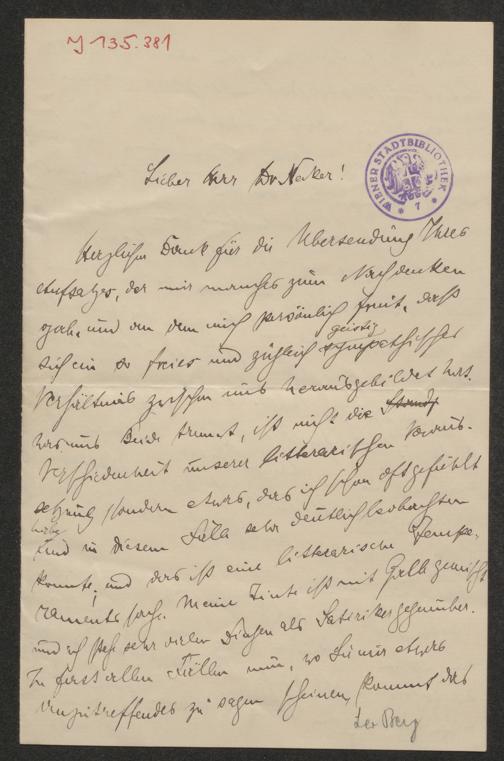 J 135.381
WIENER STADTBIBLIOTHEK
* 7 *
Lieber Herr Dr Necker!
Herzlichen Dank für die Übersendung Ihres
Aufsatzes, der mir manches zum Nachdenken
gab, und an dem mich persönlich freut, daß
sich ein so freies und zugleich geistig sympathisches
Verhältnis zwischen uns herausgebildet hat.
Was uns Beide trennt, ist nicht die
Verschiedenheit unserer litterarischen Voraus-
setzung sondern etwas, das ich schon oft gefühlt
habe und in diesem Falle sehr deutlich beobachten
konnte; und das ist eine litterarische Tempe-
ramentssache. Meine Tinte ist mit Galle gemischt
und ich stehe sehr vielen Dingen als Satiriker gegenüber.
In fast allen Fällen nun, wo Sie mir etwas
zu sagen scheinen, kommt das